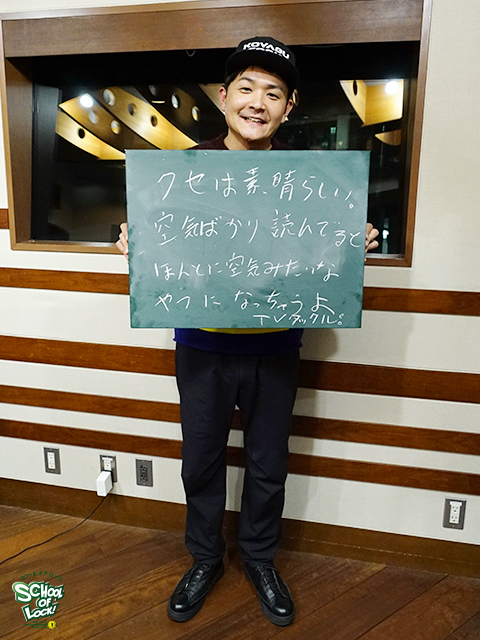 KOYABU
クセは素晴らしい。
空気ばかり読んでると
ほんとに空気みたいな
やつになっちゃうよ
TVタックル。
SCHOOL
OF
LOCK!